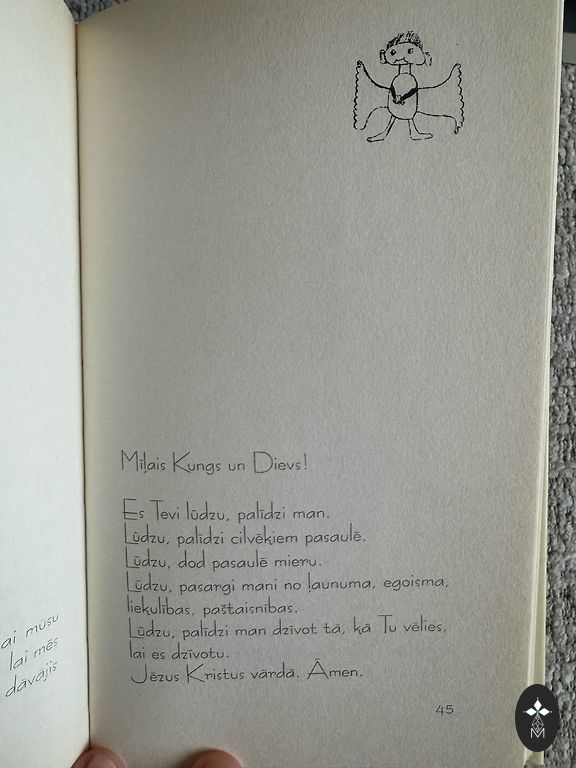 Mīļais Kungs un Dievs!
Es Tevi lūdzu, palīdzi man.
Lūdzu, palīdzi cilvēkiem pasaulē.
Lūdzu, dod pasaulē mieru.
Lūdzu, pasargi mani no ļaunuma, egoisma,
liekulības, paštaisnības.
Lūdzu, palīdzi man dzīvot tā, kā Tu vēlies,
lai es dzīvotu.
Jēzus Kristus vārdā. Āmen.
45
ai musu
lai mēs
dāvājis
M